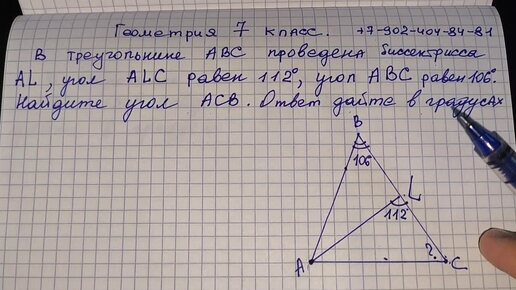 Геометрия 7 класс. +7-902-404-84-81
В треугольнике ABC проведена биссектрисса
AL, угол ALC равен 112°, угол ABC равен 106°.
Найдите угол ACB. Ответ дайте в градусах
B
106
L
112
?
A
C